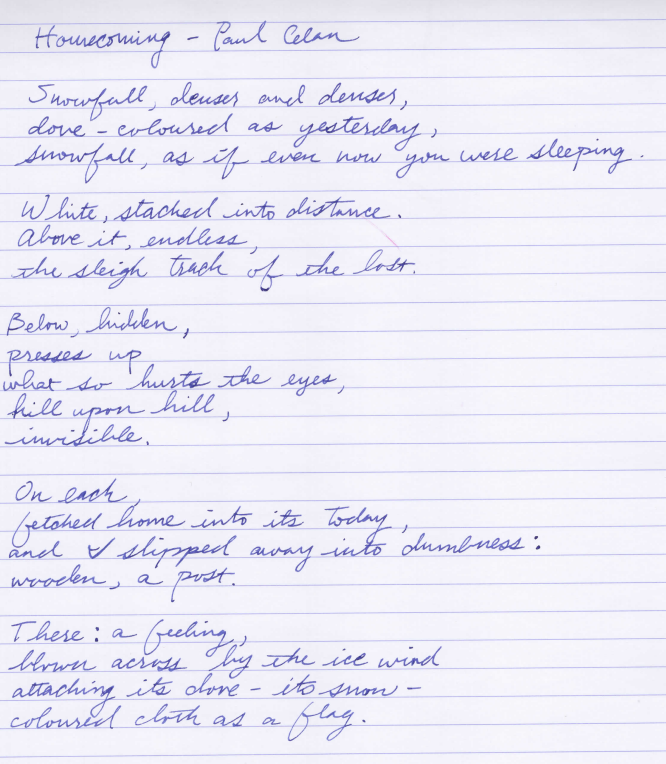 Homecoming - Paul Celan
Snowfall, denser and denser,
dove-coloured as yesterday,
snowfall, as if even now you were sleeping.
White, stacked into distance.
Above it, endless,
the sleigh track of the lost.
Below, hidden,
presses up
what so hurts the eyes,
hill upon hill,
invisible.
On each,
fetched home into its today,
and I slipped away into dumbness:
wooden, a post.
There: a feeling,
blown across by the ice wind
attaching its dove- its snow-
coloured cloth as a flag.